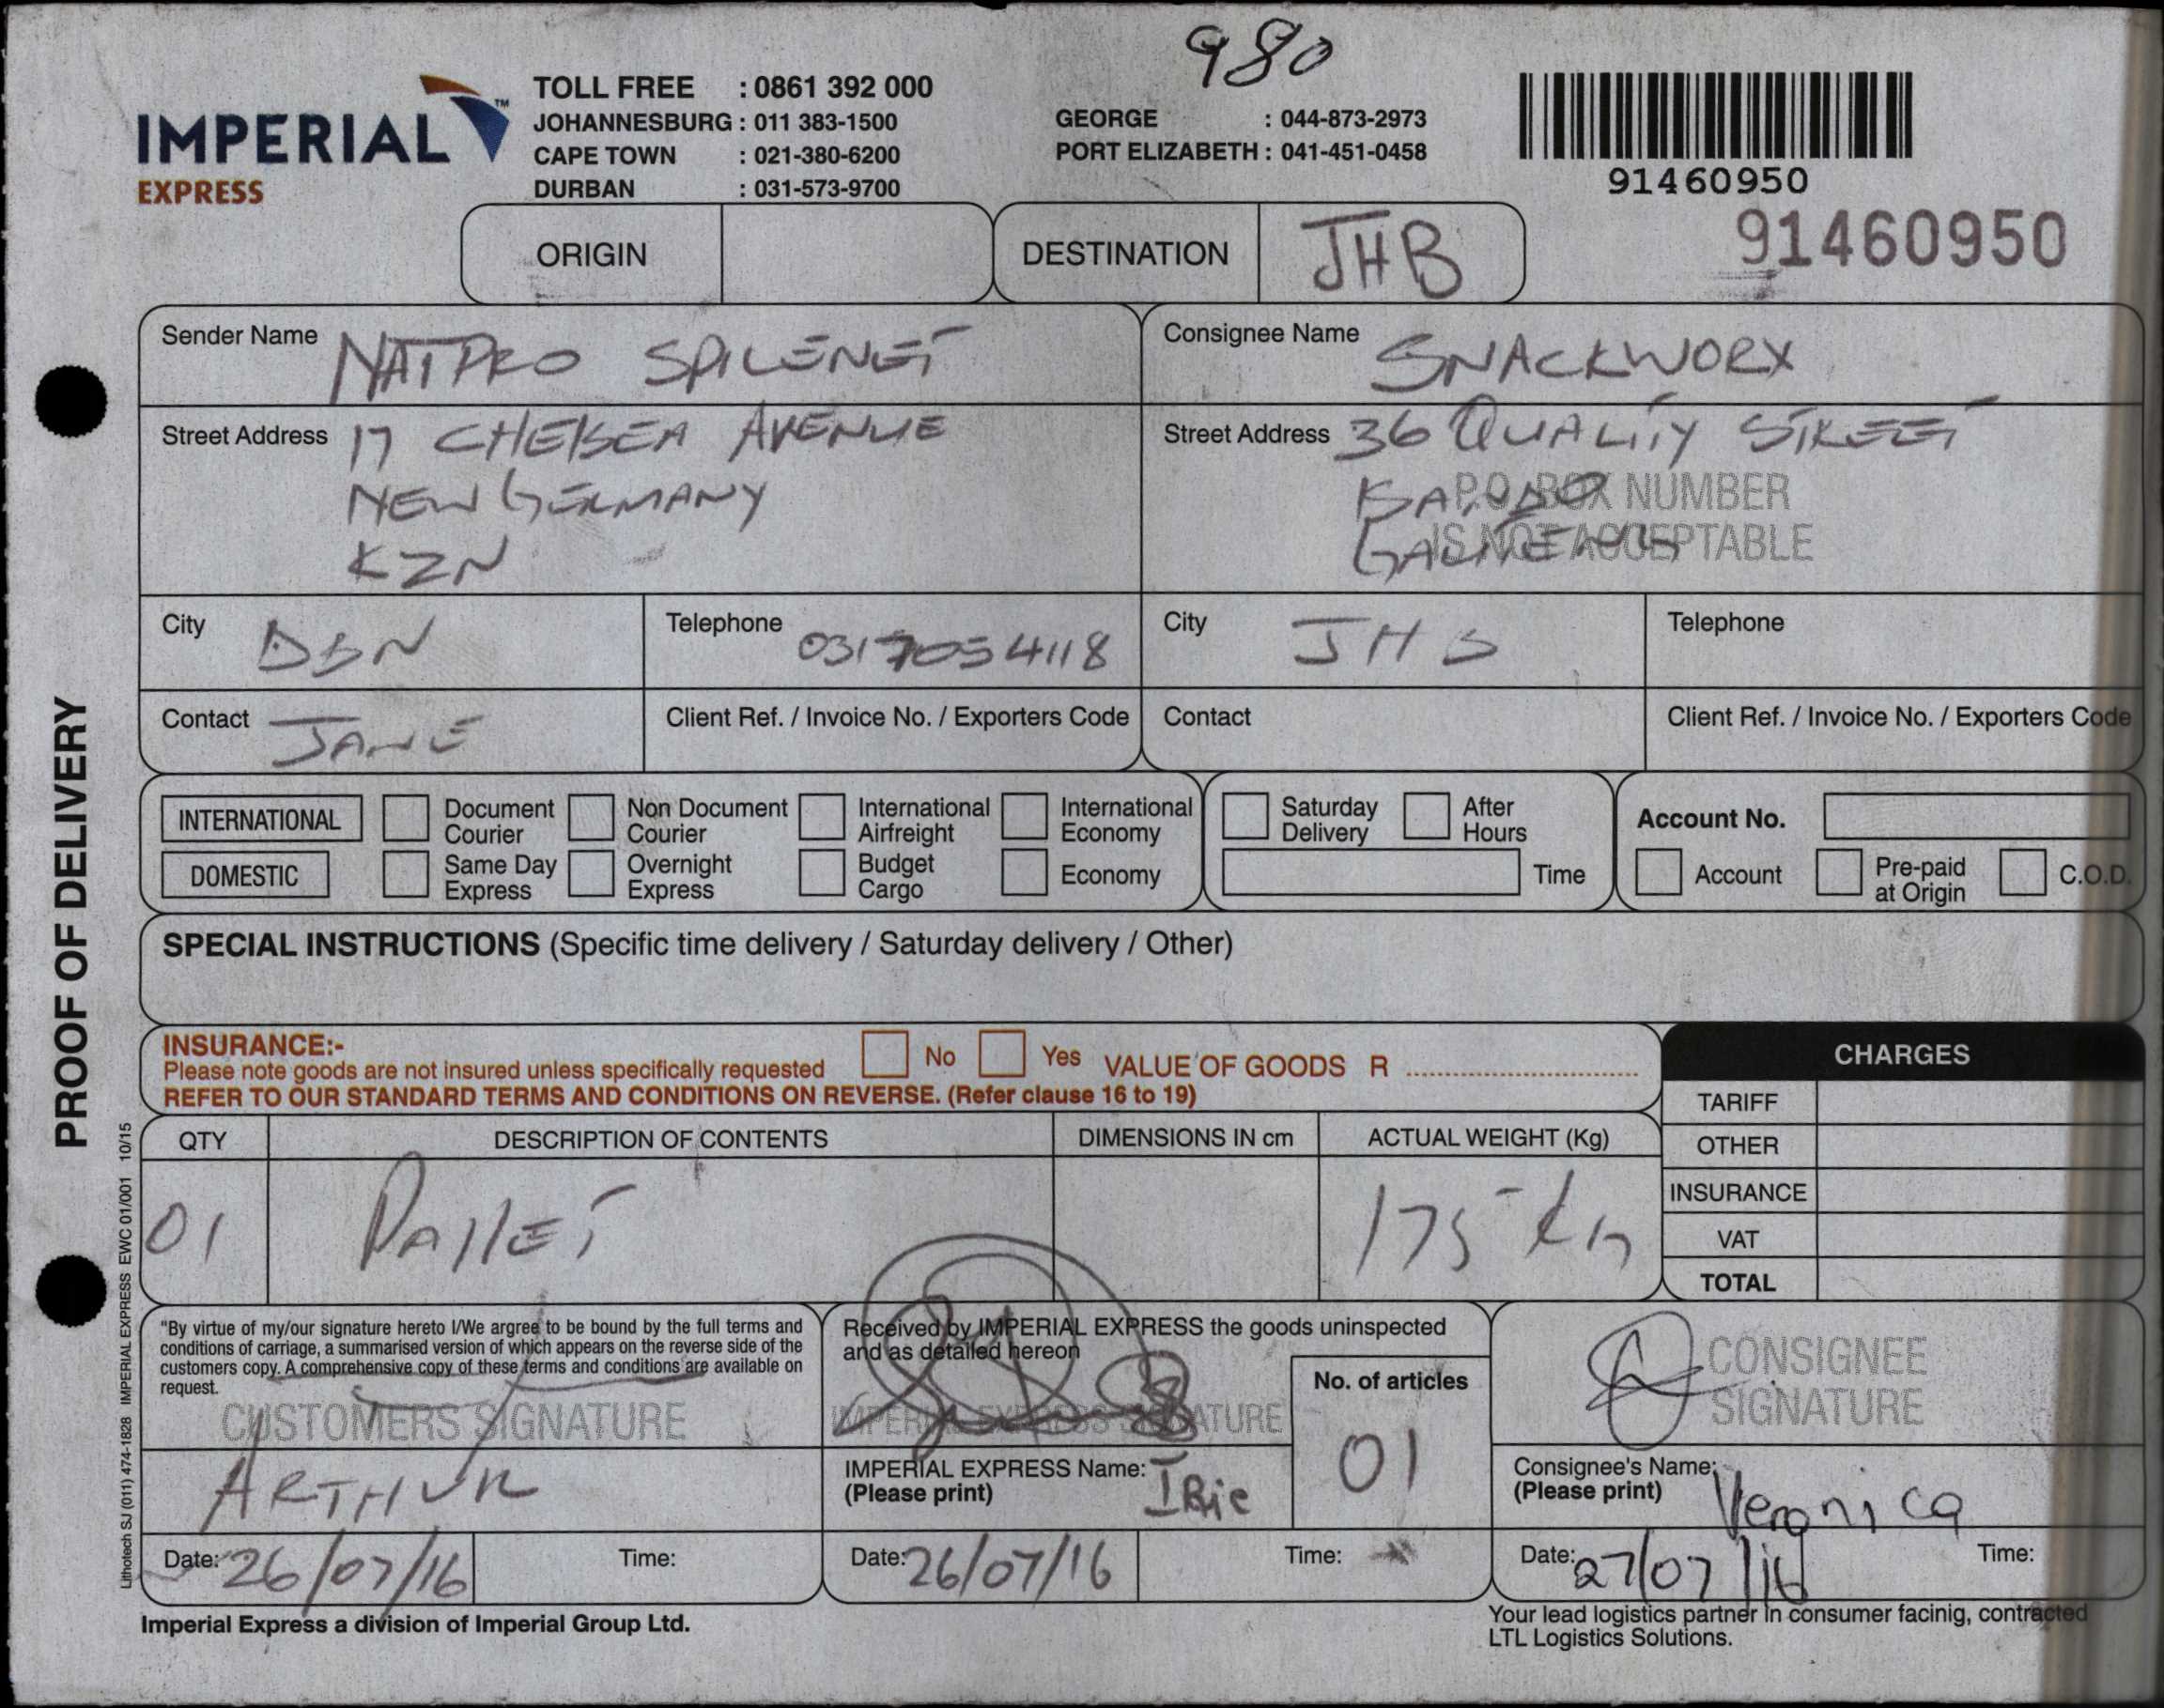 980
IMPERIAL™
EXPRESS
TOLL FREE : 0861 392 000
JOHANNESBURG : 011 383-1500
CAPE TOWN : 021-380-6200
DURBAN : 031-573-9700
GEORGE : 044-873-2973
PORT ELIZABETH : 041-451-0458
91460950
91460950
ORIGIN
DESTINATION JHB
Sender Name NATPRO SPICENET
Consignee Name SNACKWORX
Street Address 17 CHELSEA AVENUE
NEW GERMANY
KZN
Street Address 36 QUALITY STREET
P.O. BOX NUMBER
IS NOT ACCEPTABLE
GAUTENG
City DBN
Telephone 0317054118
City JHB
Telephone
Contact JANE
Client Ref. / Invoice No. / Exporters Code
Contact
Client Ref. / Invoice No. / Exporters Code
INTERNATIONAL
Document Courier
Non Document Courier
International Airfreight
International Economy
DOMESTIC
Same Day Express
Overnight Express
Budget Cargo
Economy
Saturday Delivery
After Hours
Time
Account No.
Account
Pre-paid at Origin
C.O.D.
SPECIAL INSTRUCTIONS (Specific time delivery / Saturday delivery / Other)
INSURANCE:-
Please note goods are not insured unless specifically requested
No Yes VALUE OF GOODS R ..............................
REFER TO OUR STANDARD TERMS AND CONDITIONS ON REVERSE. (Refer clause 16 to 19)
CHARGES
TARIFF
OTHER
INSURANCE
VAT
TOTAL
QTY DESCRIPTION OF CONTENTS DIMENSIONS IN cm ACTUAL WEIGHT (Kg)
01 PALLET 175 KG
"By virtue of my/our signature hereto I/We argree to be bound by the full terms and
conditions of carriage, a summarised version of which appears on the reverse side of the
customers copy. A comprehensive copy of these terms and conditions are available on
request.
CUSTOMERS SIGNATURE
ARTHUR
Date: 26/07/16 Time:
Received by IMPERIAL EXPRESS the goods uninspected
and as detailed hereon
IMPERIAL EXPRESS SIGNATURE
No. of articles
01
IMPERIAL EXPRESS Name:
(Please print)
Date: 26/07/16 Time:
CONSIGNEE
SIGNATURE
Consignee's Name:
(Please print) Veronica
Date: 27/07/16 Time:
Imperial Express a division of Imperial Group Ltd.
Your lead logistics partner in consumer facinig, contracted
LTL Logistics Solutions.
PROOF OF DELIVERY
Lithotech SJ (011) 474-1828 IMPERIAL EXPRESS EWC 01/001 10/15